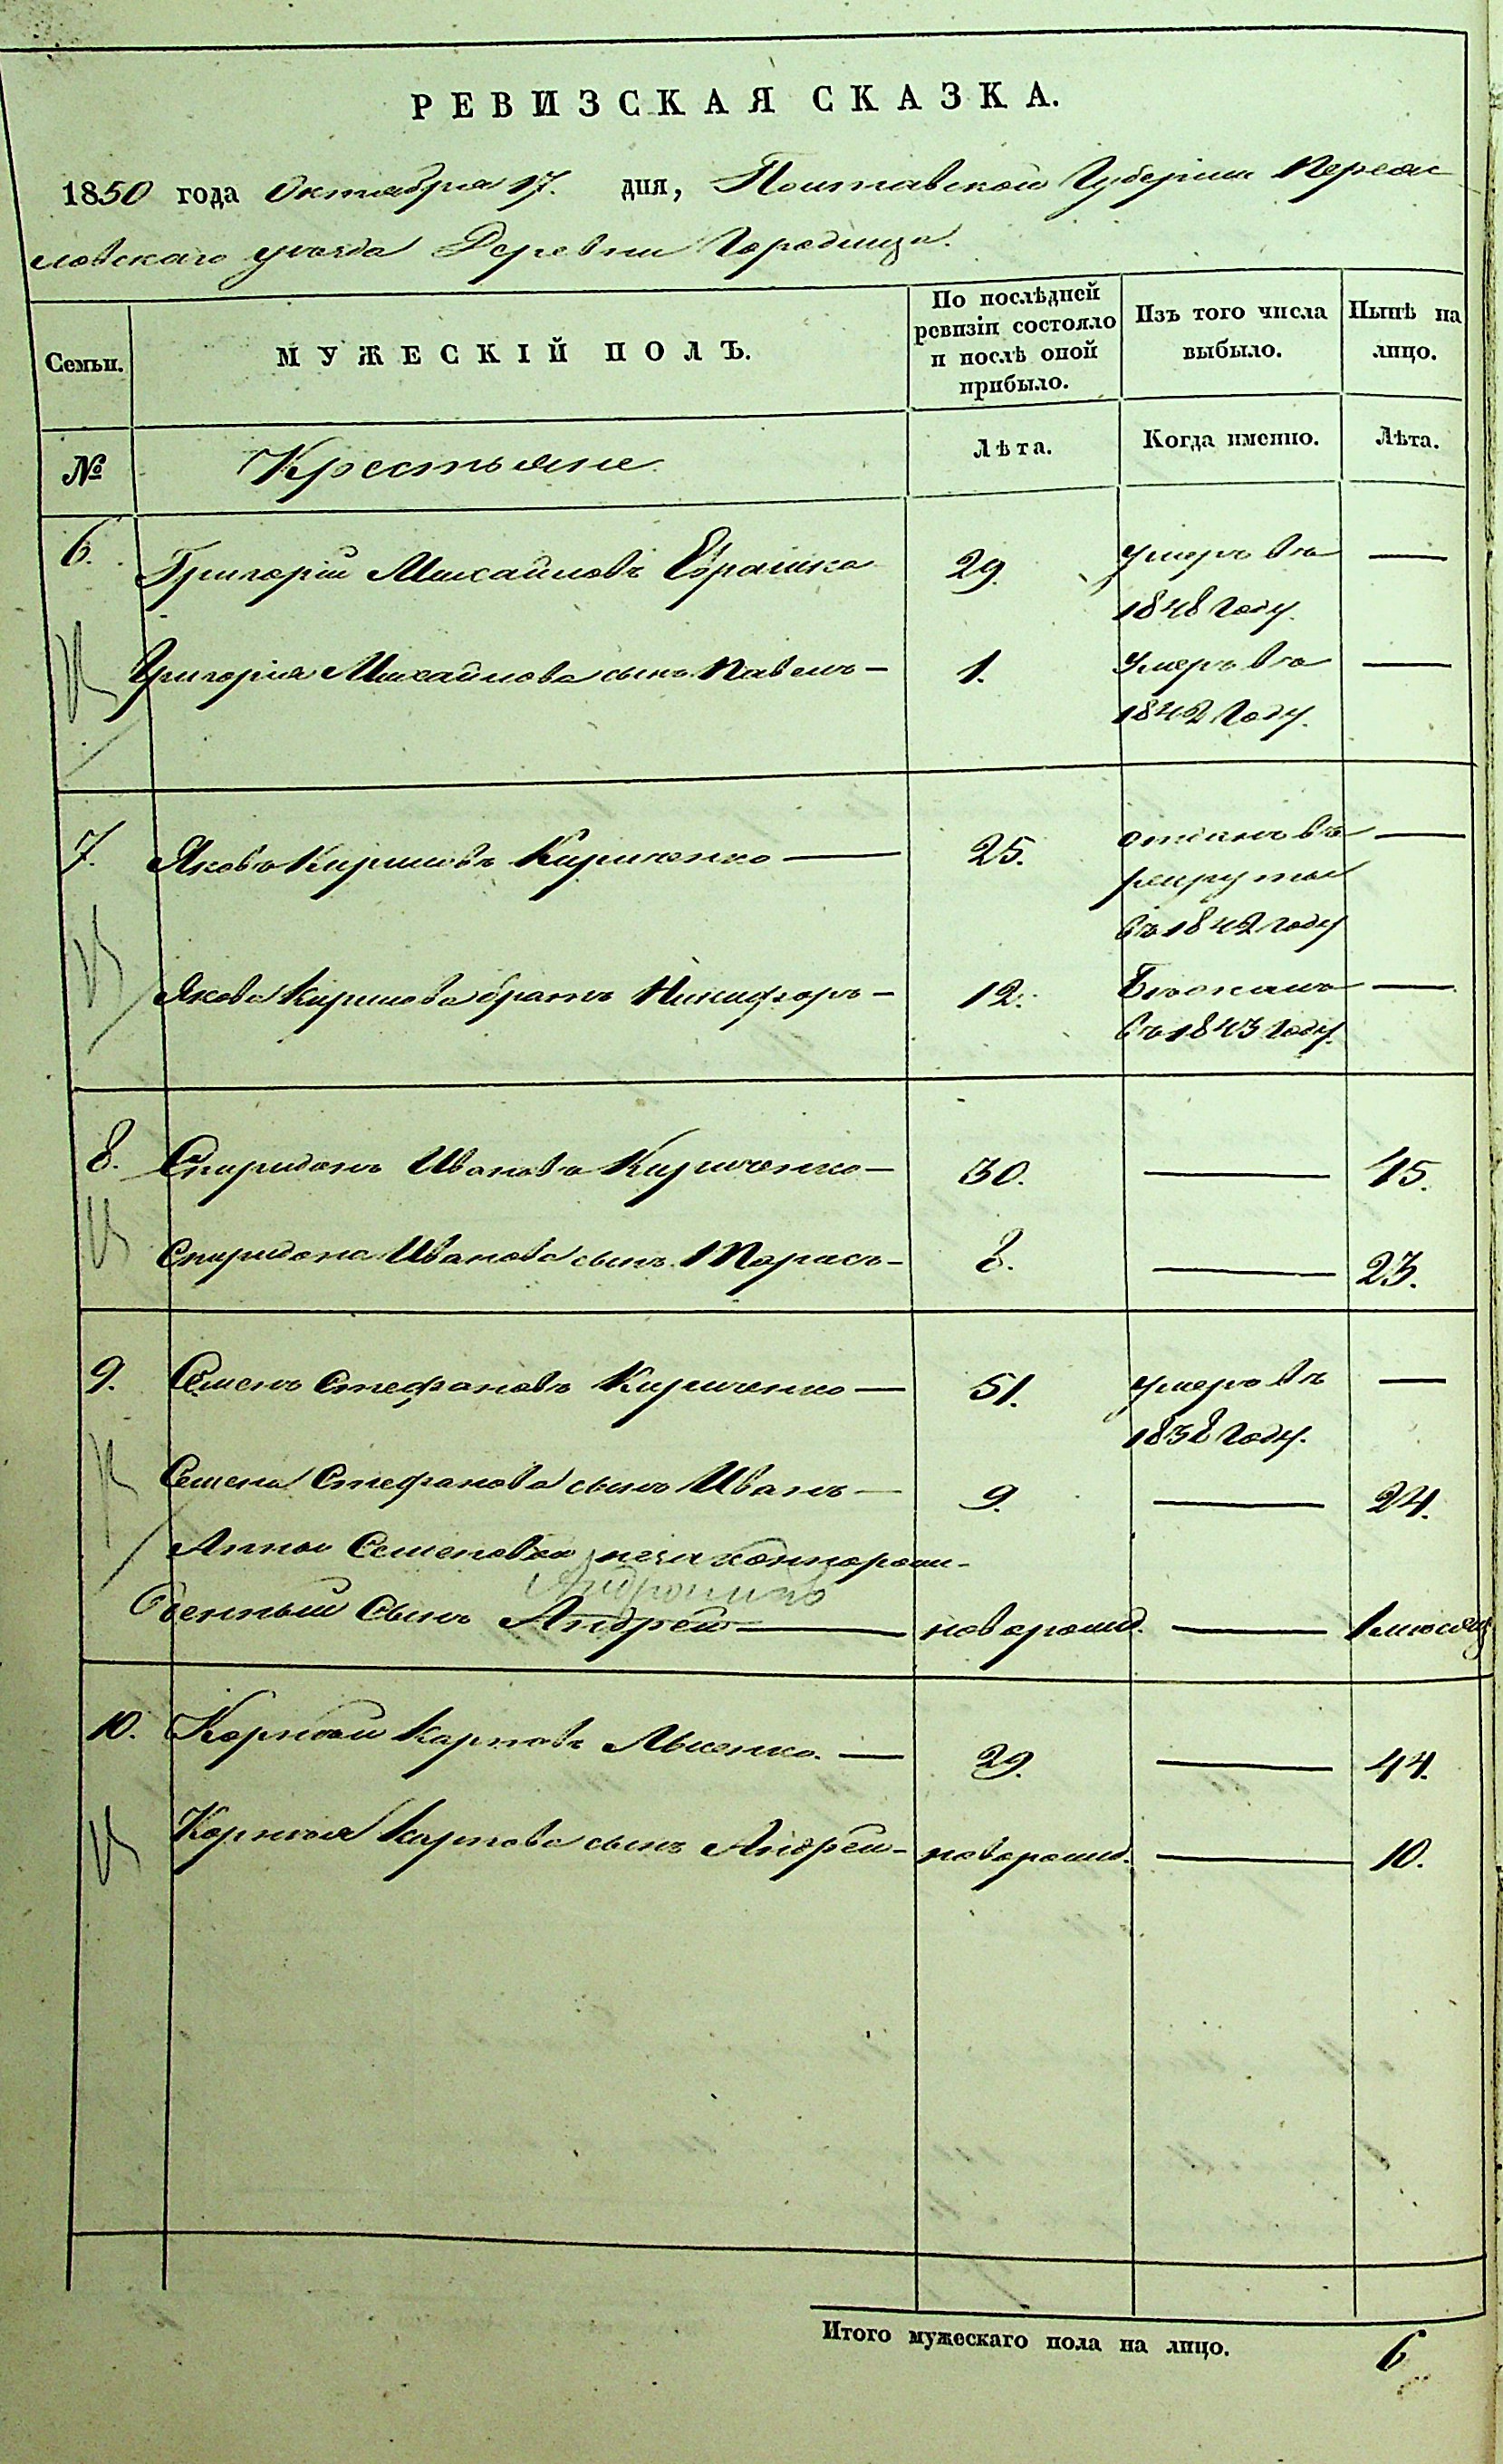 РЕВИЗСКАЯ СКАЗКА.
1850 года Октября 17. дня, Полтавской Губернiи Переяс
лавскаго уѣзда Деревни Городища.
Семьи.
МУЖЕСКIЙ ПОЛЪ.
По послѣдней
ревизiи состояло
и послѣ оной
прибыло.
Изъ того числа
выбыло.
Нынѣ на
лицо.
№
Крестьяне
Лѣта.
Когда именно.
Лѣта.
6. Григорiй Михайловъ Еврашко 29. умеръ въ —
1848 году.
Григорiя Михайлова сынъ Павелъ — 1. умеръ въ —
1842 году.
7. Яковъ Кириловъ Кириченко — 25. отданъ въ —
рекруты
въ 1842 году
Якова Кирилова братъ Никифоръ — 12. Бѣжалъ —
въ 1843 году.
8. Спиридонъ Ивановъ Кириченко — 30. — 45.
Спиридона Иванова сынъ Тарасъ — 8. — 23.
9. Семенъ Стефановъ Кириченко — 51. умеръ въ —
1838 году.
Семена Стефанова сынъ Иванъ — 9. — 24.
Анны Семеновой незаконнорож-
Андроникъ
денный сынъ Андрей — новорожд. — 1 мѣсяц
10. Корнѣй Карповъ Лысенко. — 29. — 44.
Корнѣя Карпова сынъ Андрей — новорожд. — 10.
Итого мужескаго пола на лицо. 6